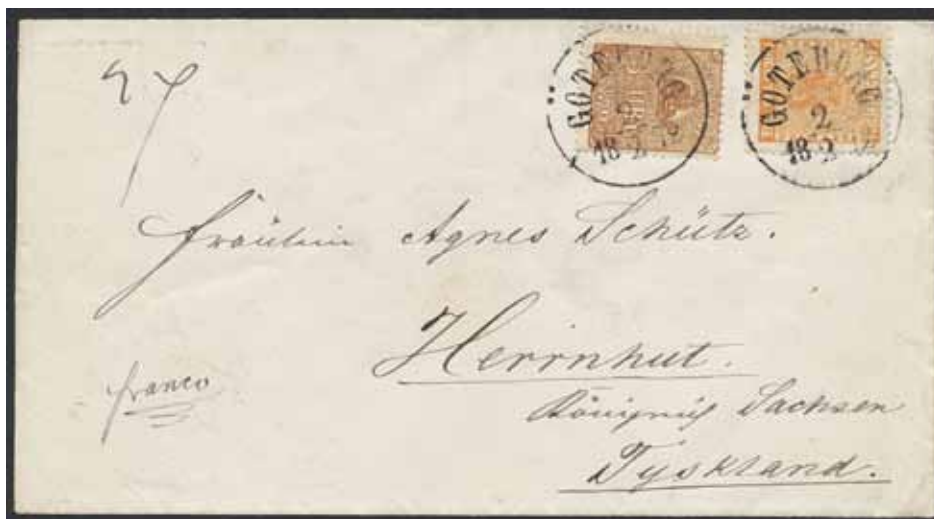 GÖTEBORG
2
18 2
GÖTEBORG
2
18 2
Fräulein Agnes Schütz.
Herrnhut.
franco
Königreich Sachsen
Tyskland.